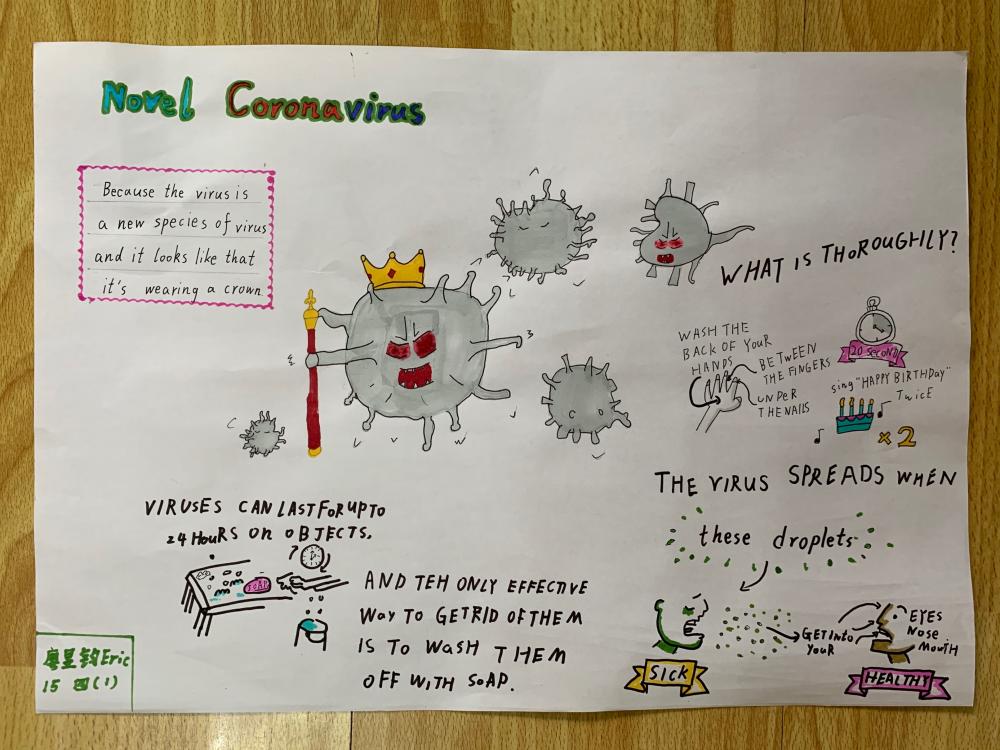 Novel Coronavirus
Because the virus is
a new species of virus
and it looks like that
it's wearing a crown
WHAT IS THOROUGHLY?
WASH THE
BACK OF YOUR
HANDS
BETWEEN
THE FINGERS
UNDER
THE NAILS
20 SECOND
sing "HAPPY BIRTHDAY"
TWICE
×2
VIRUSES CAN LAST FOR UP TO
24 HOURS ON OBJECTS.
SOAP
AND TEH ONLY EFFECTIVE
WAY TO GET RID OF THEM
IS TO WASH THEM
OFF WITH SOAP.
THE VIRUS SPREADS WHEN
these droplets
GET INTO
YOUR
EYES
NOSE
MOUTH
SICK
HEALTHY
Eric
15 四(1)